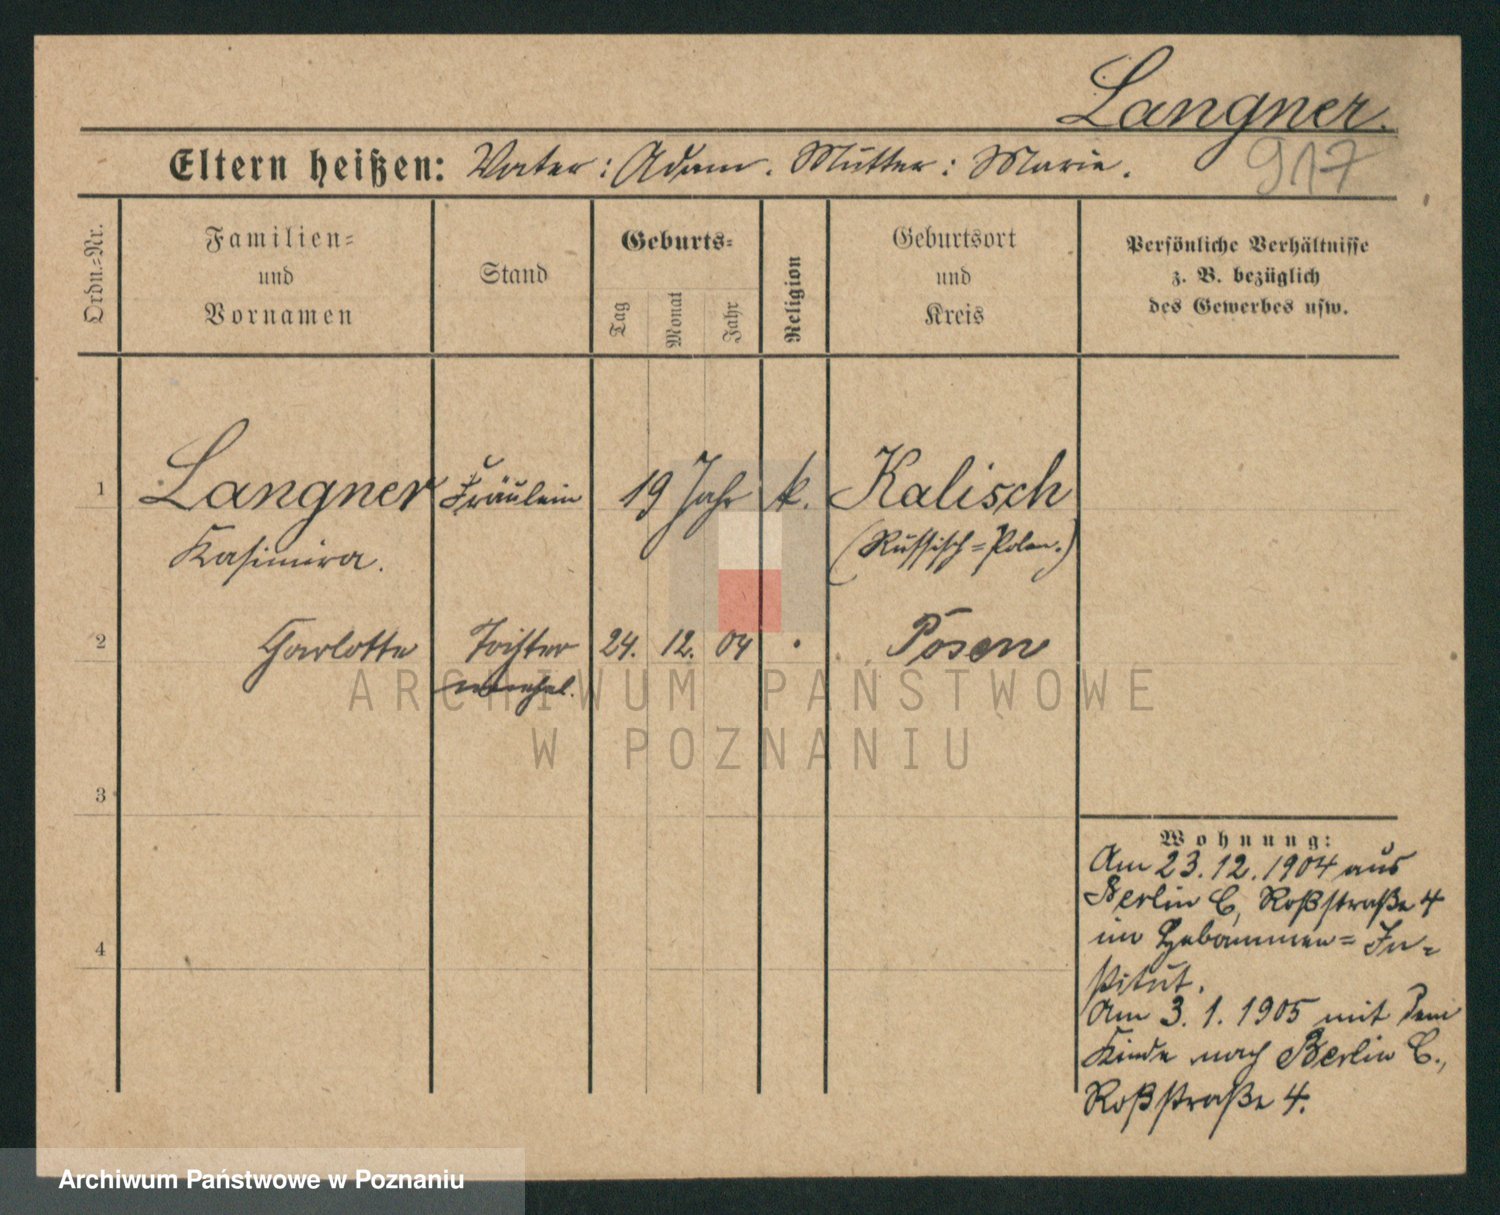 Langner.
917
Eltern heißen: Vater: Adam. Mutter: Marie.
Ordn.-Nr.
Familien-
und
Vornamen
Stand
Geburts-
Tag
Monat
Jahr
Religion
Geburtsort
und
Kreis
Persönliche Verhältnisse
z. B. bezüglich
des Gewerbes usw.
1 Langner Fräulein 19 Jahr k. Kalisch
Kasimira. (Russisch-Polen.)
2 Charlotte Tochter 24. 12. 04 Posen
unehel.
ARCHIWUM PAŃSTWOWE
W POZNANIU
3
4
Wohnung:
Am 23.12.1904 aus
Berlin C, Roßstraße 4
im Hebammen-In-
stitut.
Am 3. 1. 1905 mit dem
Kinde nach Berlin C.,
Roßstraße 4.
Archiwum Państwowe w Poznaniu